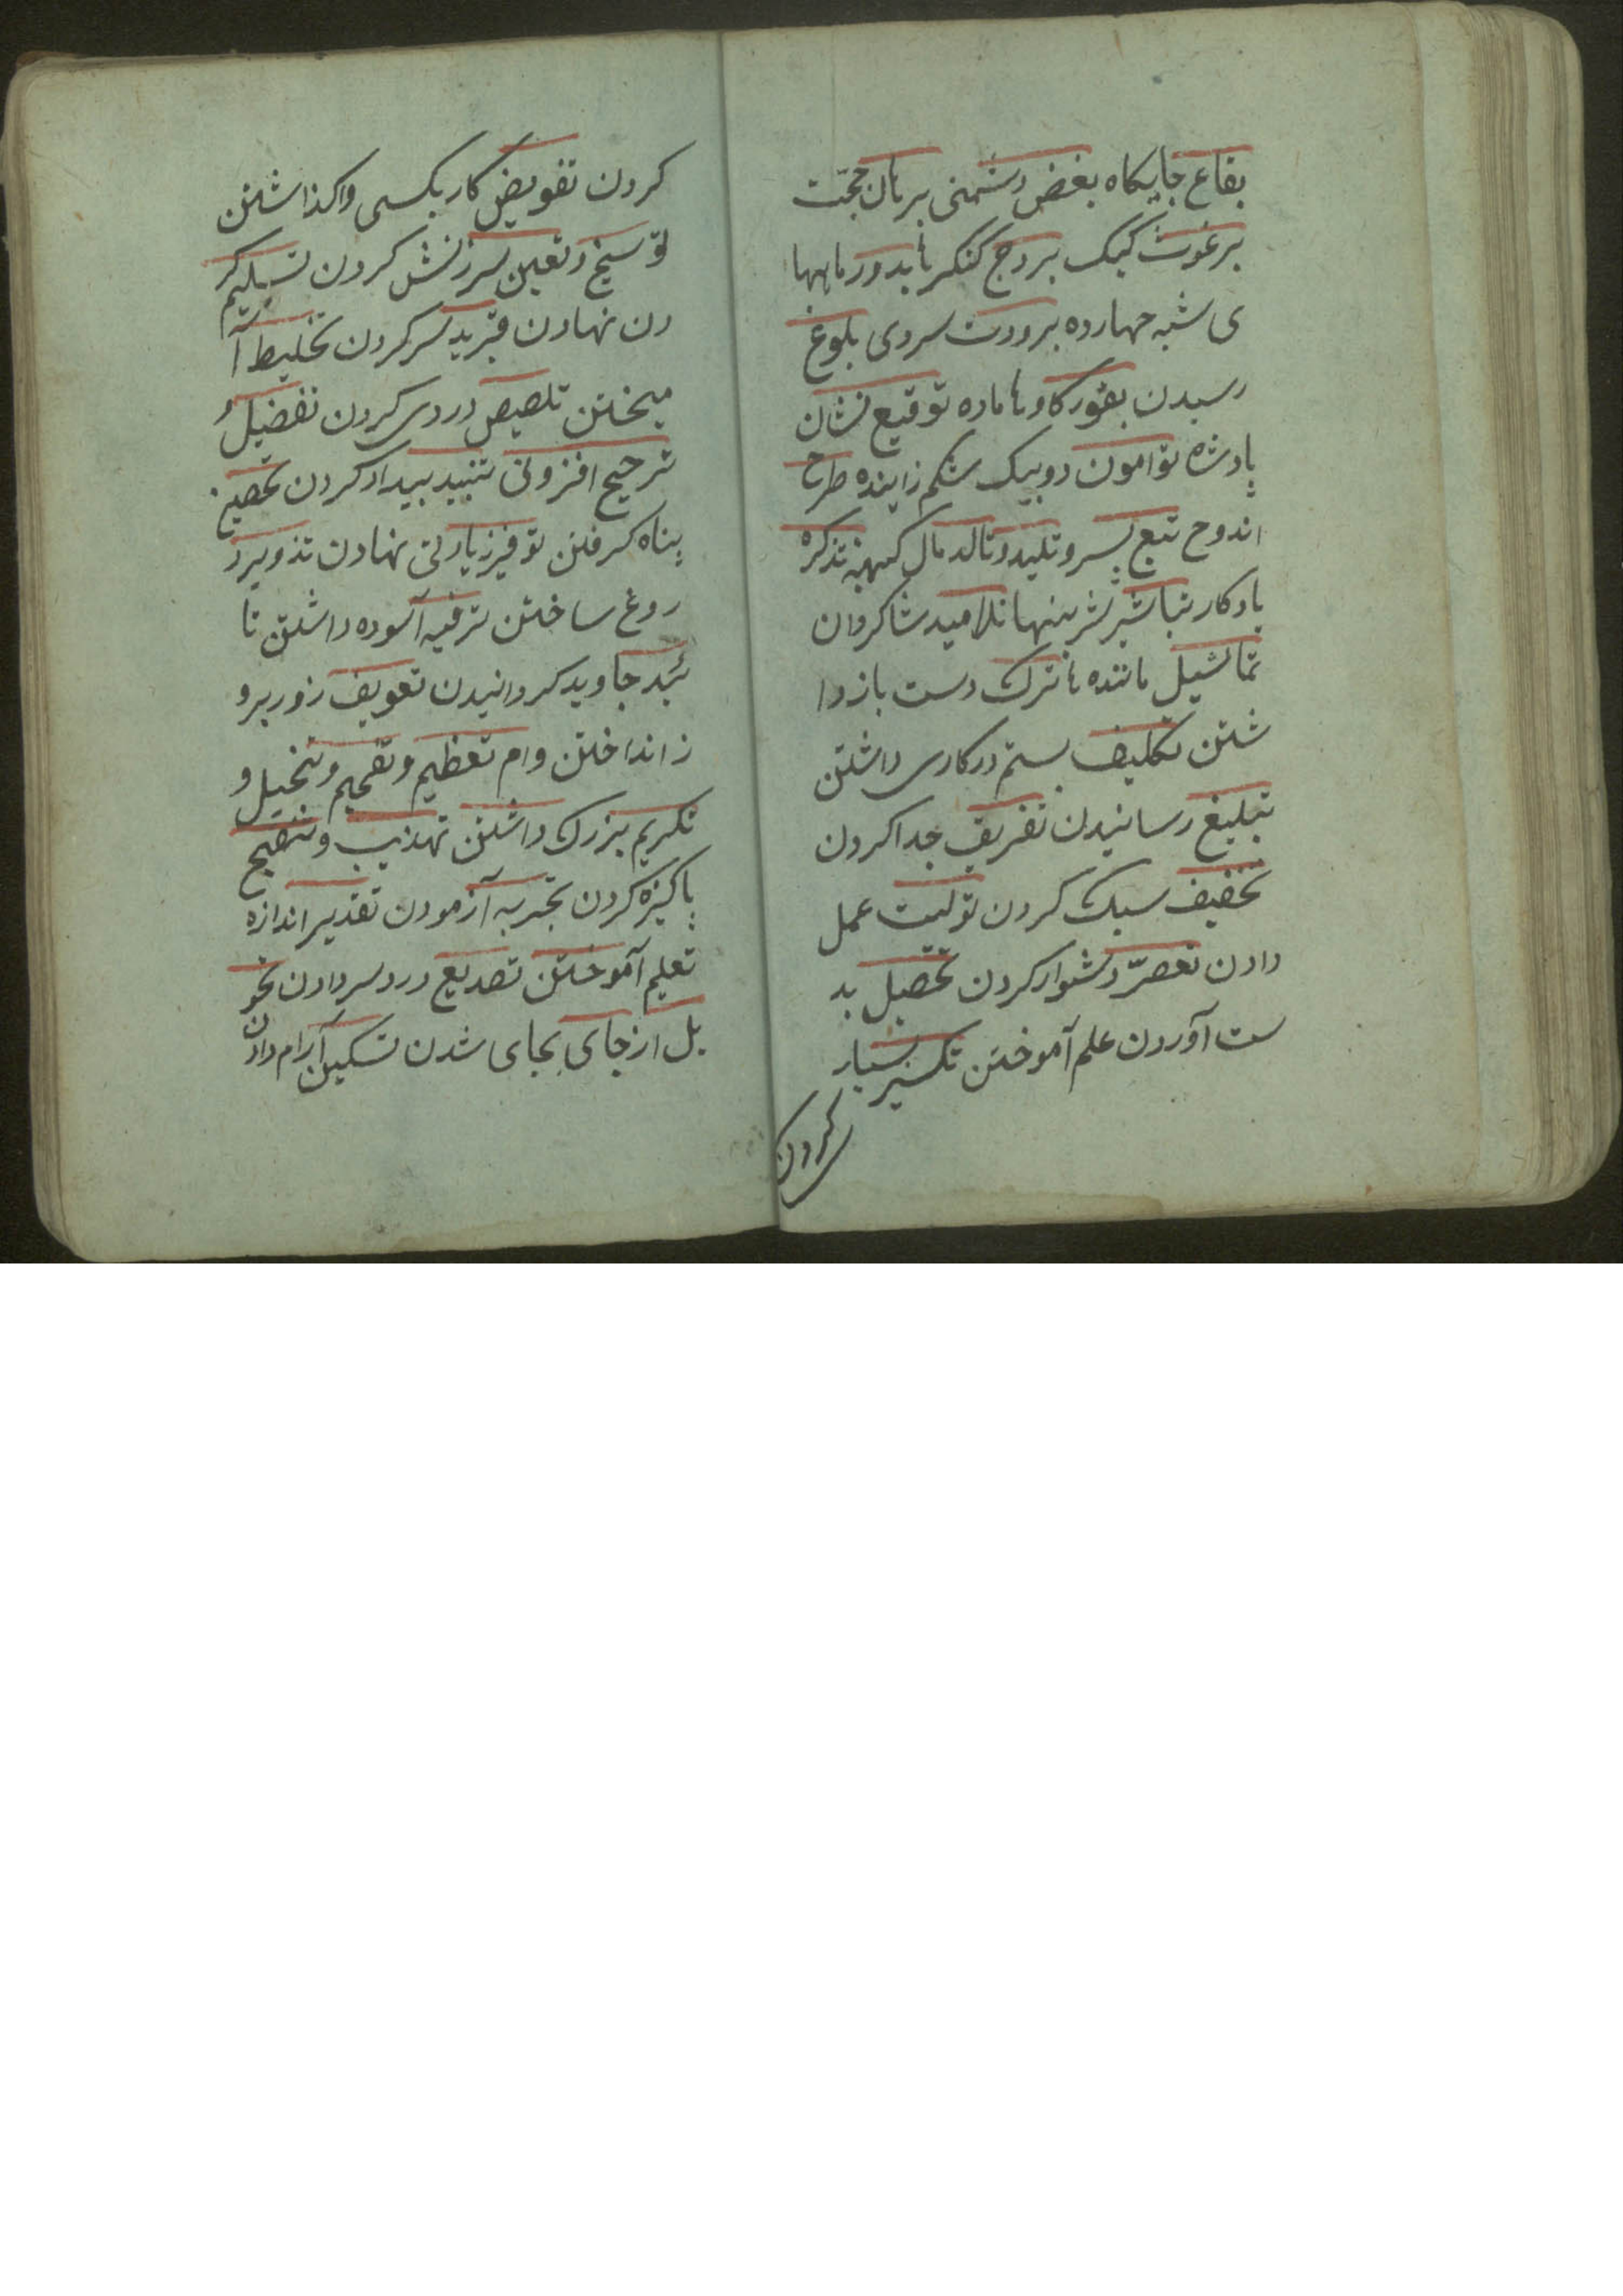 بقاع جایکاه بغض دشمنی برهان حجت
برغوث کیک بروج کنکرها بدور ماهها
ی شبه چهارده برودت سردی بلوغ
رسیدن بقور کاوها ماده توقیع نشان
پادشاه توامون دوبیک شکم زاینده طرح
اندوح تبع پسرو تلید و تالد مال کهنه تذکره
یادکار تباشیر بشرینیها تلامید شاکردان
تماثیل مانندها ترک دست بازدا
شتن تکلیف بستم در کاری داشتن
تبلیغ رسانیدن تفریق جدا کردن
تخفیف سبک کردن تولیت عمل
دادن تعصر دشوار کردن تحصیل بد
ست آوردن علم آموختن تکسیر بسیار
کردن
کردن تفویض کار بکسی واکذاشتن
توسیخ و تعین سرزنش کردن تسلیم کر
دن نهادن تبرید سر کردن تخلیط آ
میختن تلصیص دردی کردن تفضیل و
ترجیح افزونی تنبید بیدار کردن تحصین
پناه کرفتن توفیر زیادتی نهادن تذویر د
روغ ساختن ترفیه آسوده داشتن تا
بید جاوید کردانیدن تعویف زور برو
ز انداختن وام تعظیم و تفحیم و تبخیل و
تکریم بزرک داشتن تهذیب و تنقیح
پاکیزه کردن تجربه آزمودن تقدیر اندازه
تعلیم آموختن تصدیع دردسر دادن تحو
یل از جای بجای شدن تسکین آرام دادن